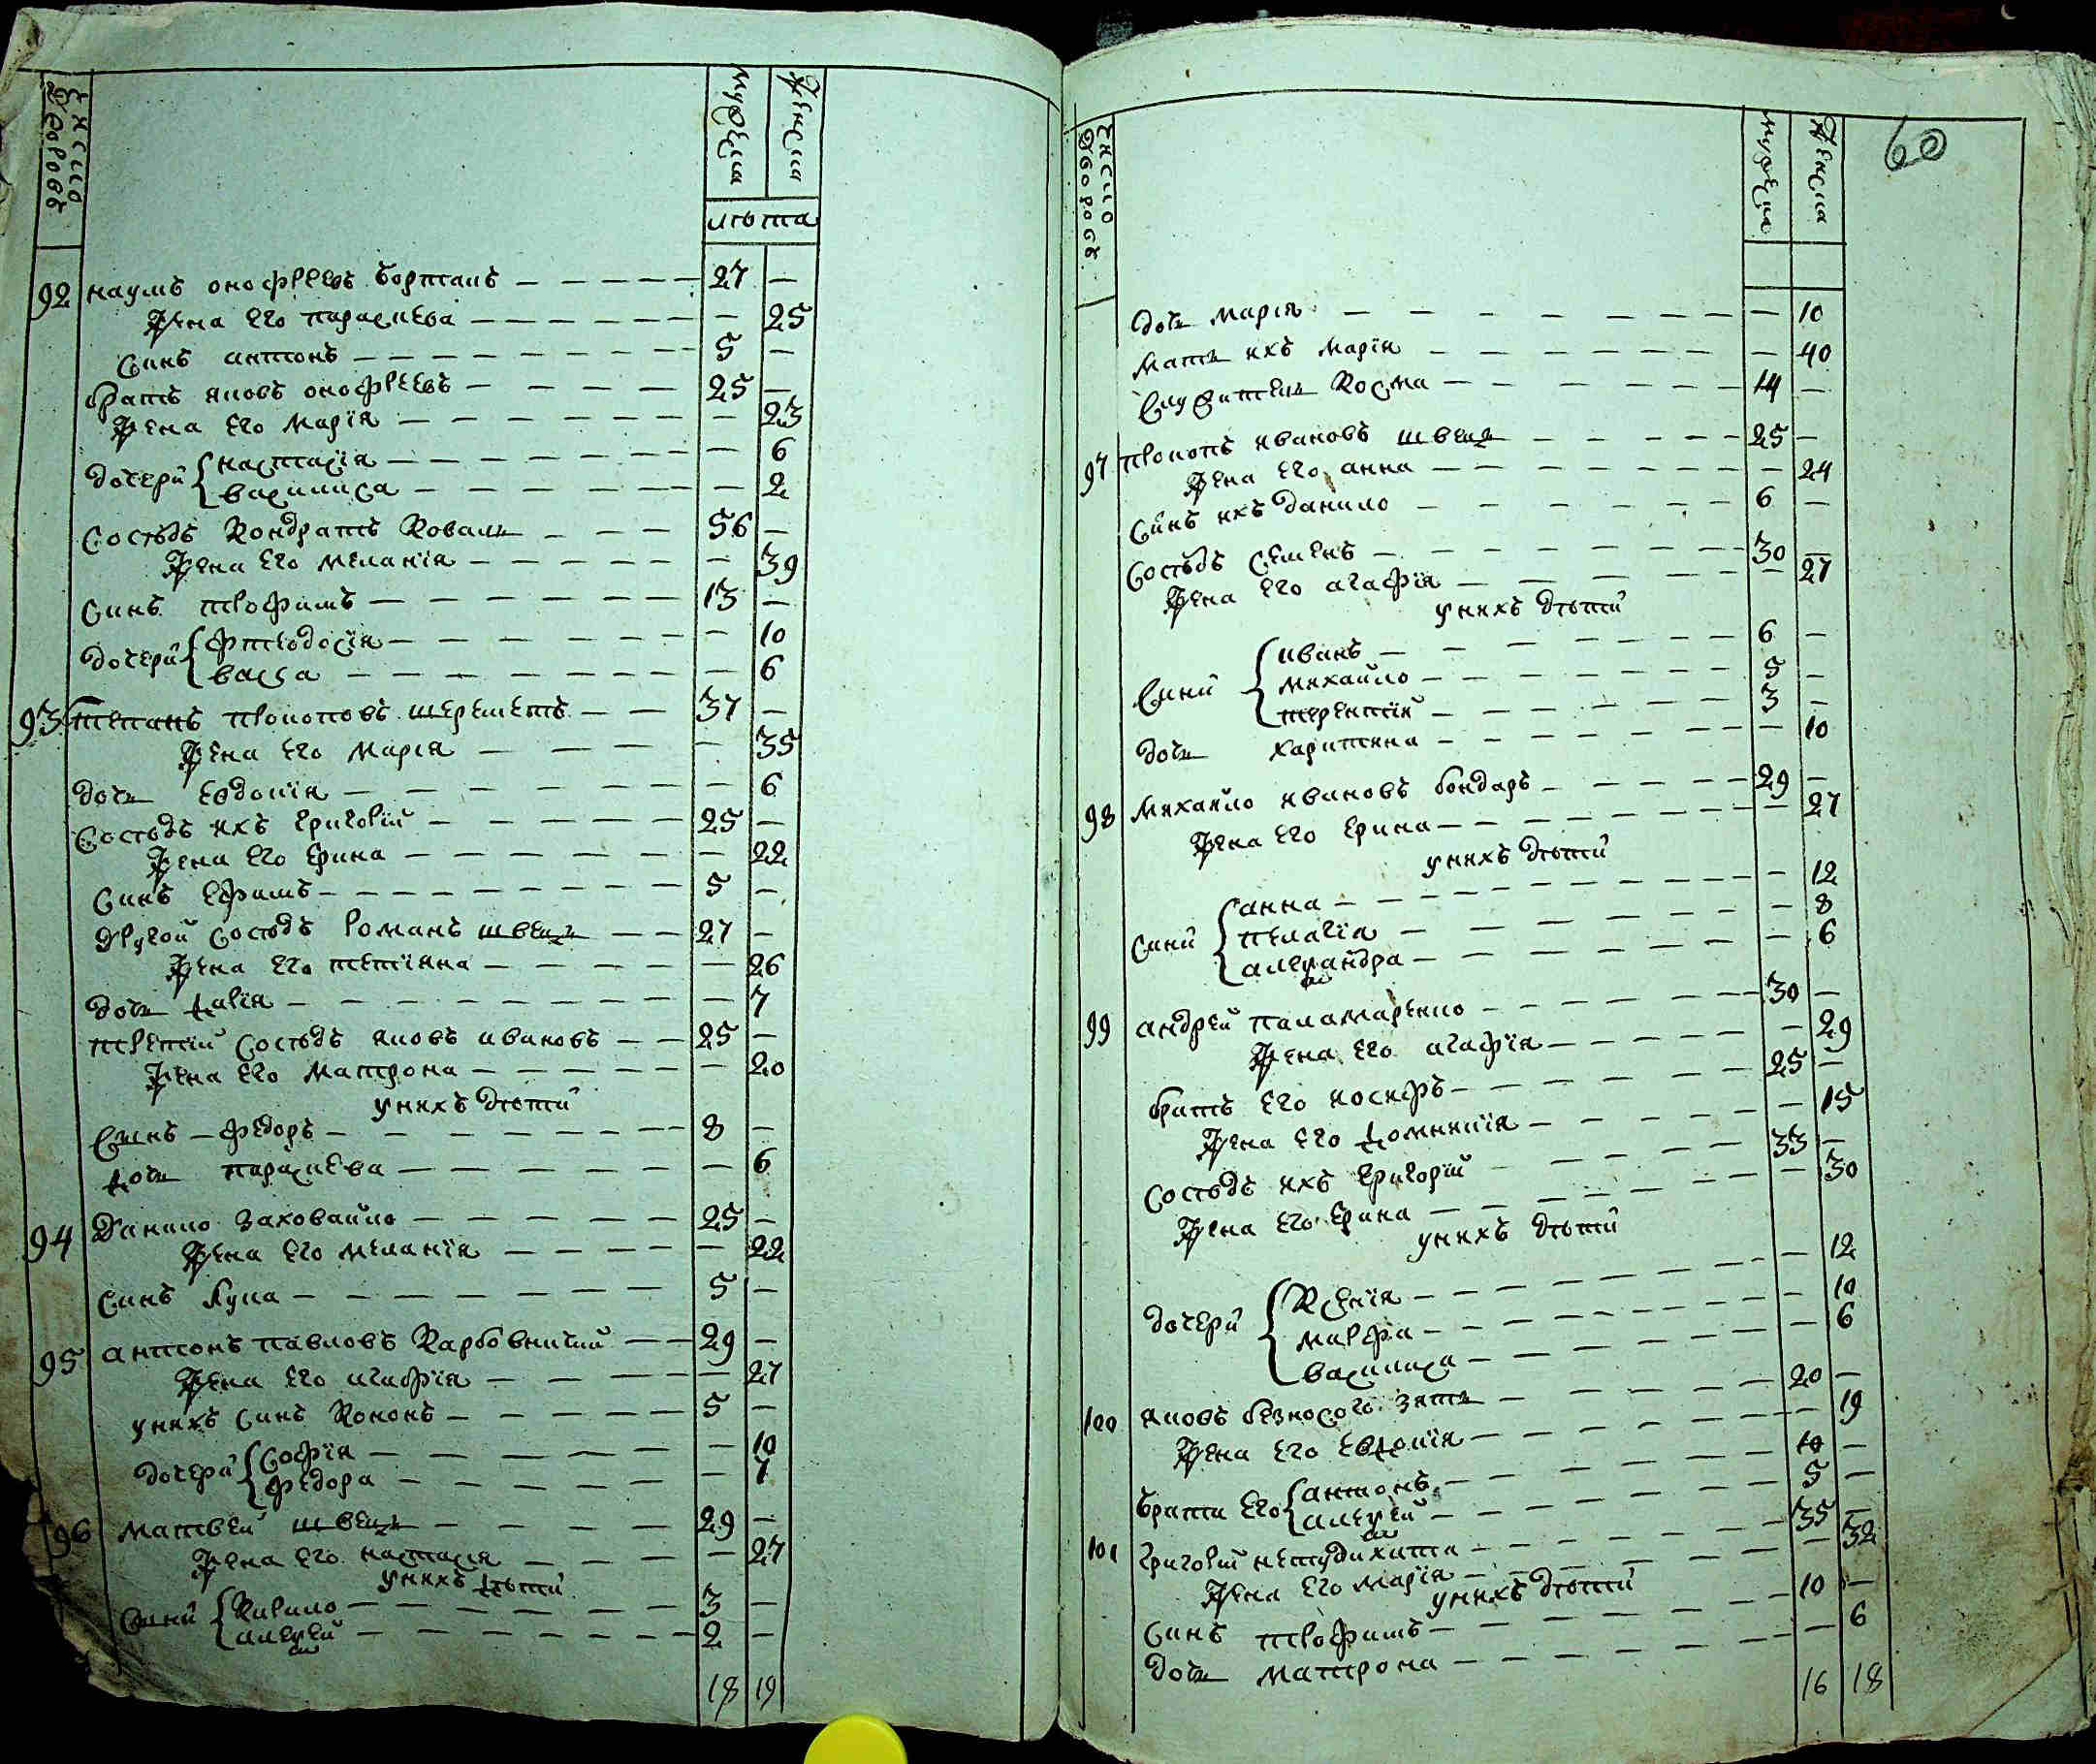 число дворовъ
мужеска
женска
лѣта
92 наумъ онофреевъ борталъ — 27 —
жена его параскева — — 25
Синъ антонъ — 5 —
братъ яковъ онофреевъ — 25 —
жена его марїя — — 23
дочерӣ настасїя — — 6
василиса — — 2
Сосѣдъ Кондратъ Коваль — 56 —
жена его меланїя — — 39
Синъ трофимъ — 13 —
дочерӣ фтеодосїя — — 10
васса — — 6
93 степанъ прокоповъ шереметъ — 37 —
жена его марїя — — 35
дочь евдокїя — — 6
Сосѣдъ ихъ григорїй — 25 —
жена его ерина — — 22
Синъ ефимъ — 5 —
другой сосѣдъ романъ швецъ — 27 —
жена его тетїяна — — 26
дочь дарїя — — 7
третїй сосѣдъ яковъ ивановъ — 25 —
жена его матрона — — 20
у нихъ дѣти
Синъ — федоръ — 8 —
дочь параскева — — 6
94 данило заховайло — 25 —
жена его меланїя — — 22
Синъ лука — 5 —
95 антонъ павловъ Карбовничий — 29 —
жена его агафїя — — 27
у нихъ синъ Кононъ — 5 —
дочерӣ софїя — — 10
федора — — 7
96 матвей швецъ — 29 —
жена его настасїя — — 27
у нихъ дѣти
Синӣ Кирило — 3 —
алеѯей — 2 —
18 19
60
число дворовъ
мужеска
женска
дочь марїя — — 10
мать ихъ марїя — — 40
Служитель Косма — 14 —
97 прокопъ ивановъ швецъ — 25 —
жена его анна — — 24
Синъ ихъ данило — 6 —
Сосѣдъ семенъ — 30 —
жена его агафїя — — 27
у нихъ дѣти
Синӣ иванъ — 6 —
михайло — 5 —
терентїй — 3 —
дочь харитина — — 10
98 михайло ивановъ бондаръ — 29 —
жена его ерина — — 27
у нихъ дѣти
Синӣ анна — — 12
пелагїя — — 8
алеѯандра — — 6
99 андрей паламаренко — 30 —
жена его агафїя — — 29
братъ его иосифъ — 25 —
жена его домникїя — — 15
Сосѣдъ ихъ григорїй — 33 —
жена его ерина — — 30
у нихъ дѣти
дочерӣ Ксенїя — — 12
марфа — — 10
василиса — — 6
100 яковъ безносого зять — 20 —
жена его евдокїя — — 19
брати его антонъ — 10 —
алеѯей — 5 —
101 григорїй нетудихата — 35 —
жена его марїя — — 32
у нихъ дѣти
Синъ трофимъ — 10 —
дочь матрона — — 6
16 18